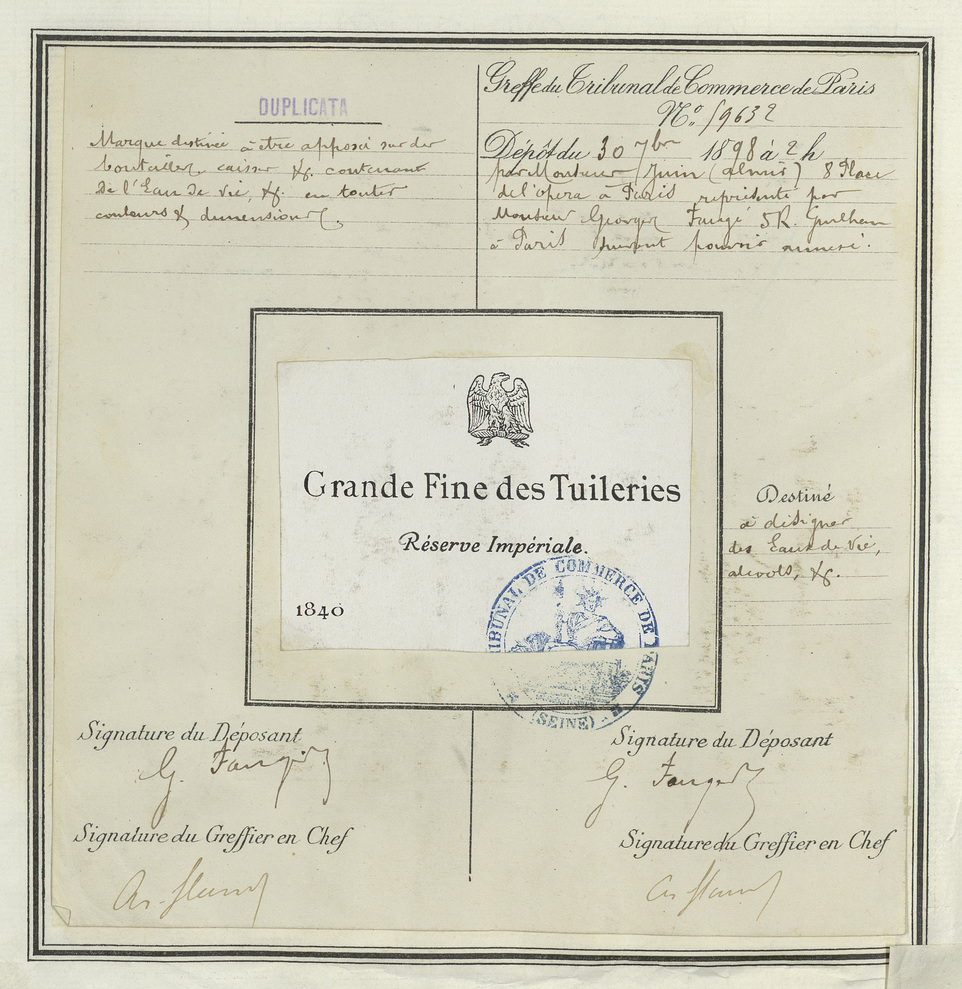 DUPLICATA
Marque destinée à être apposée sur des
bouteilles, caisses &c. contenant
de l'Eau de vie, &c. en toutes
couleurs & dimensions.
Greffe du Tribunal de Commerce de Paris
No. 59632
Dépôt du 30 7bre 1898 à 2 h
par Monsieur 8 Place
de l'opera à Paris représenté par
Monsieur Georges 5 R. Guilhem
à Paris suivant pouvoir annexé.
Grande Fine des Tuileries
Réserve Impériale.
1840
TRIBUNAL DE COMMERCE DE PARIS
(SEINE)
Destiné
à désigner
des Eaux de Vie,
alcools, &c.
Signature du Déposant
Signature du Déposant
Signature du Greffier en Chef
Signature du Greffier en Chef